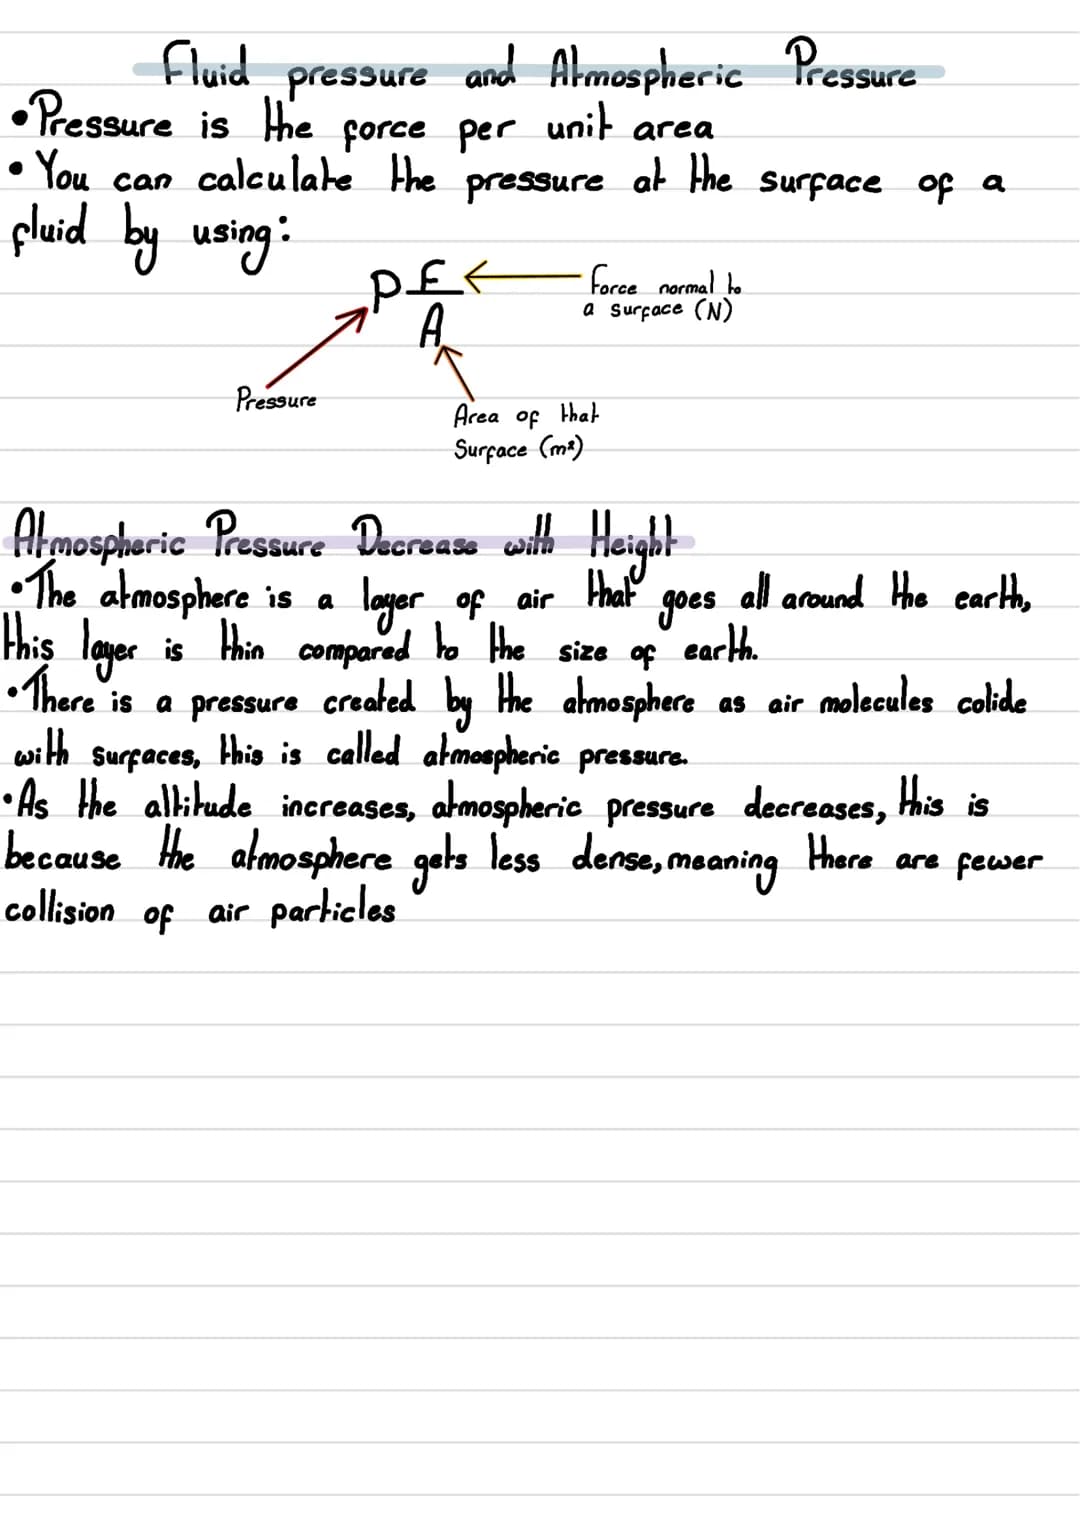 Fluid pressure and Atmospheric Pressure
• Pressure is the force per unit area
• You can calculate the pressure at the surface of a
fluid by using:
P F
A
Force normal to
a surface (N)
Pressure
Area of that
Surface (m²)
Atmospheric Pressure Decrease with Height
• The atmosphere is a layer of air that goes all around the earth,
this layer is thin compared to the size of earth.
• There is a pressure created by the atmosphere as air molecules colide
with surfaces, this is called atmospheric pressure.
• As the altitude increases, atmospheric pressure decreases, this is
because the atmosphere gets less dense, meaning there are fewer
collision of air particles